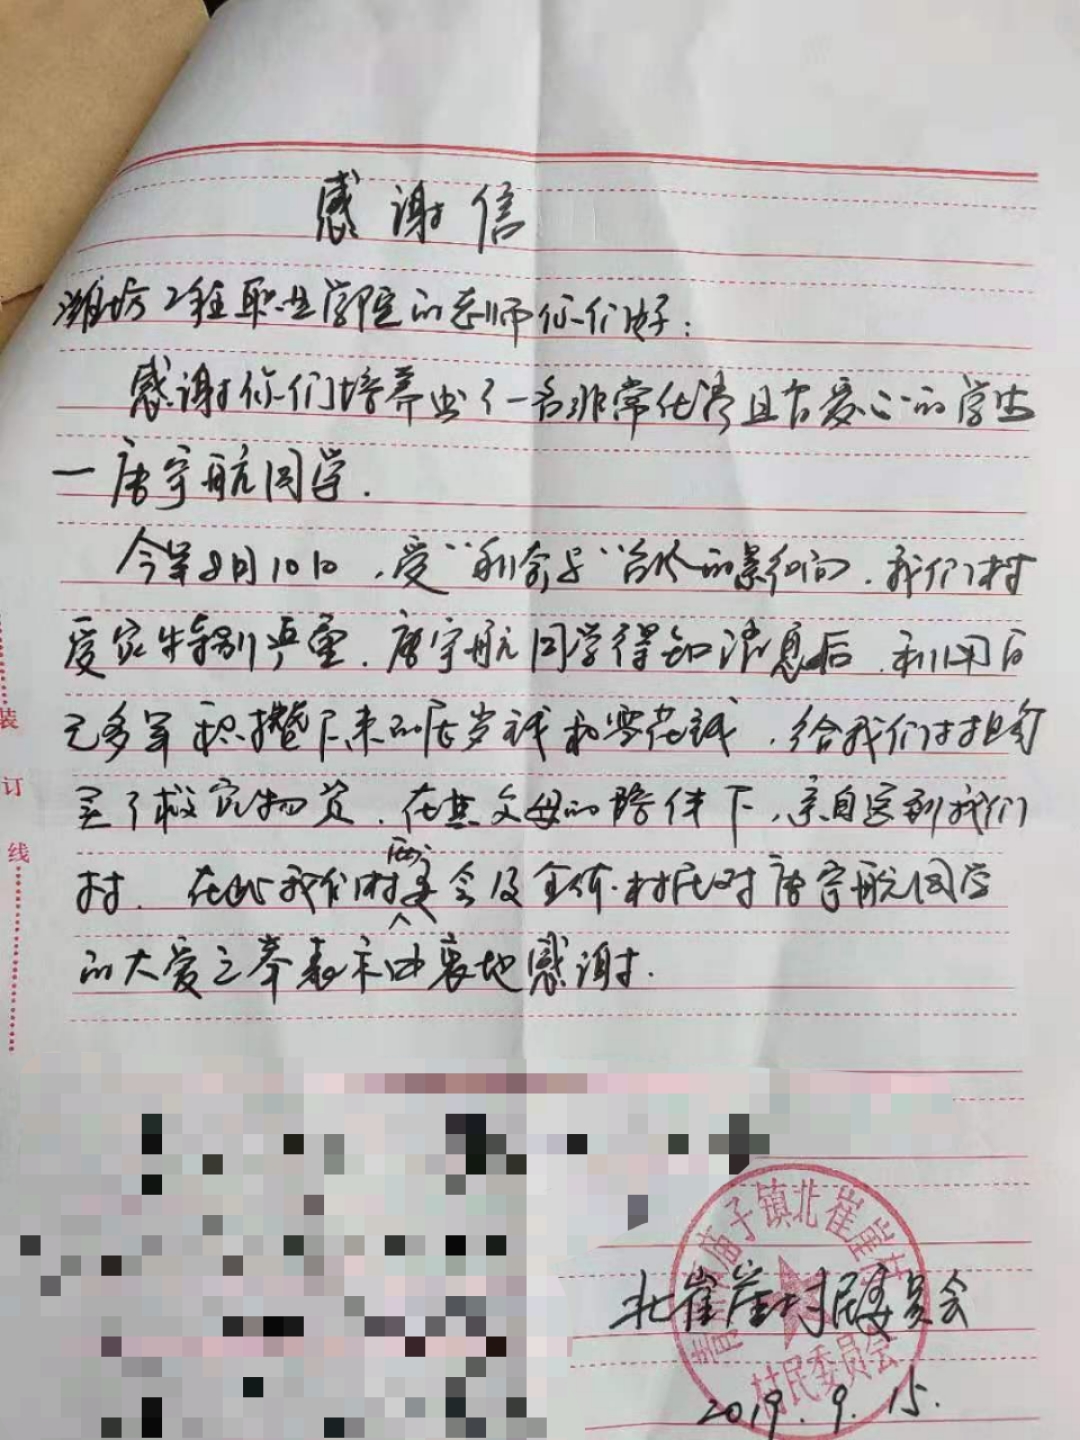 感谢信
潍坊工程职业学院的老师你们好:
感谢你们培养出了一名非常优秀且有爱心的学生
一唐宇航同学.
今年8月10日,受“利奇马”台风的影响,我们村
受灾特别严重.唐宇航同学得知消息后,利用自
己多年积攒下来的压岁钱和零花钱,给我们村购
买了救灾物资,在其父母的陪伴下,亲自送到我们
村.在此我们村两委会及全体村民对唐宇航同学
的大爱之举表示由衷地感谢.
装
订
线
庙子镇北崔崖村
村民委员会
北崔崖村民委员会
2019.9.15.